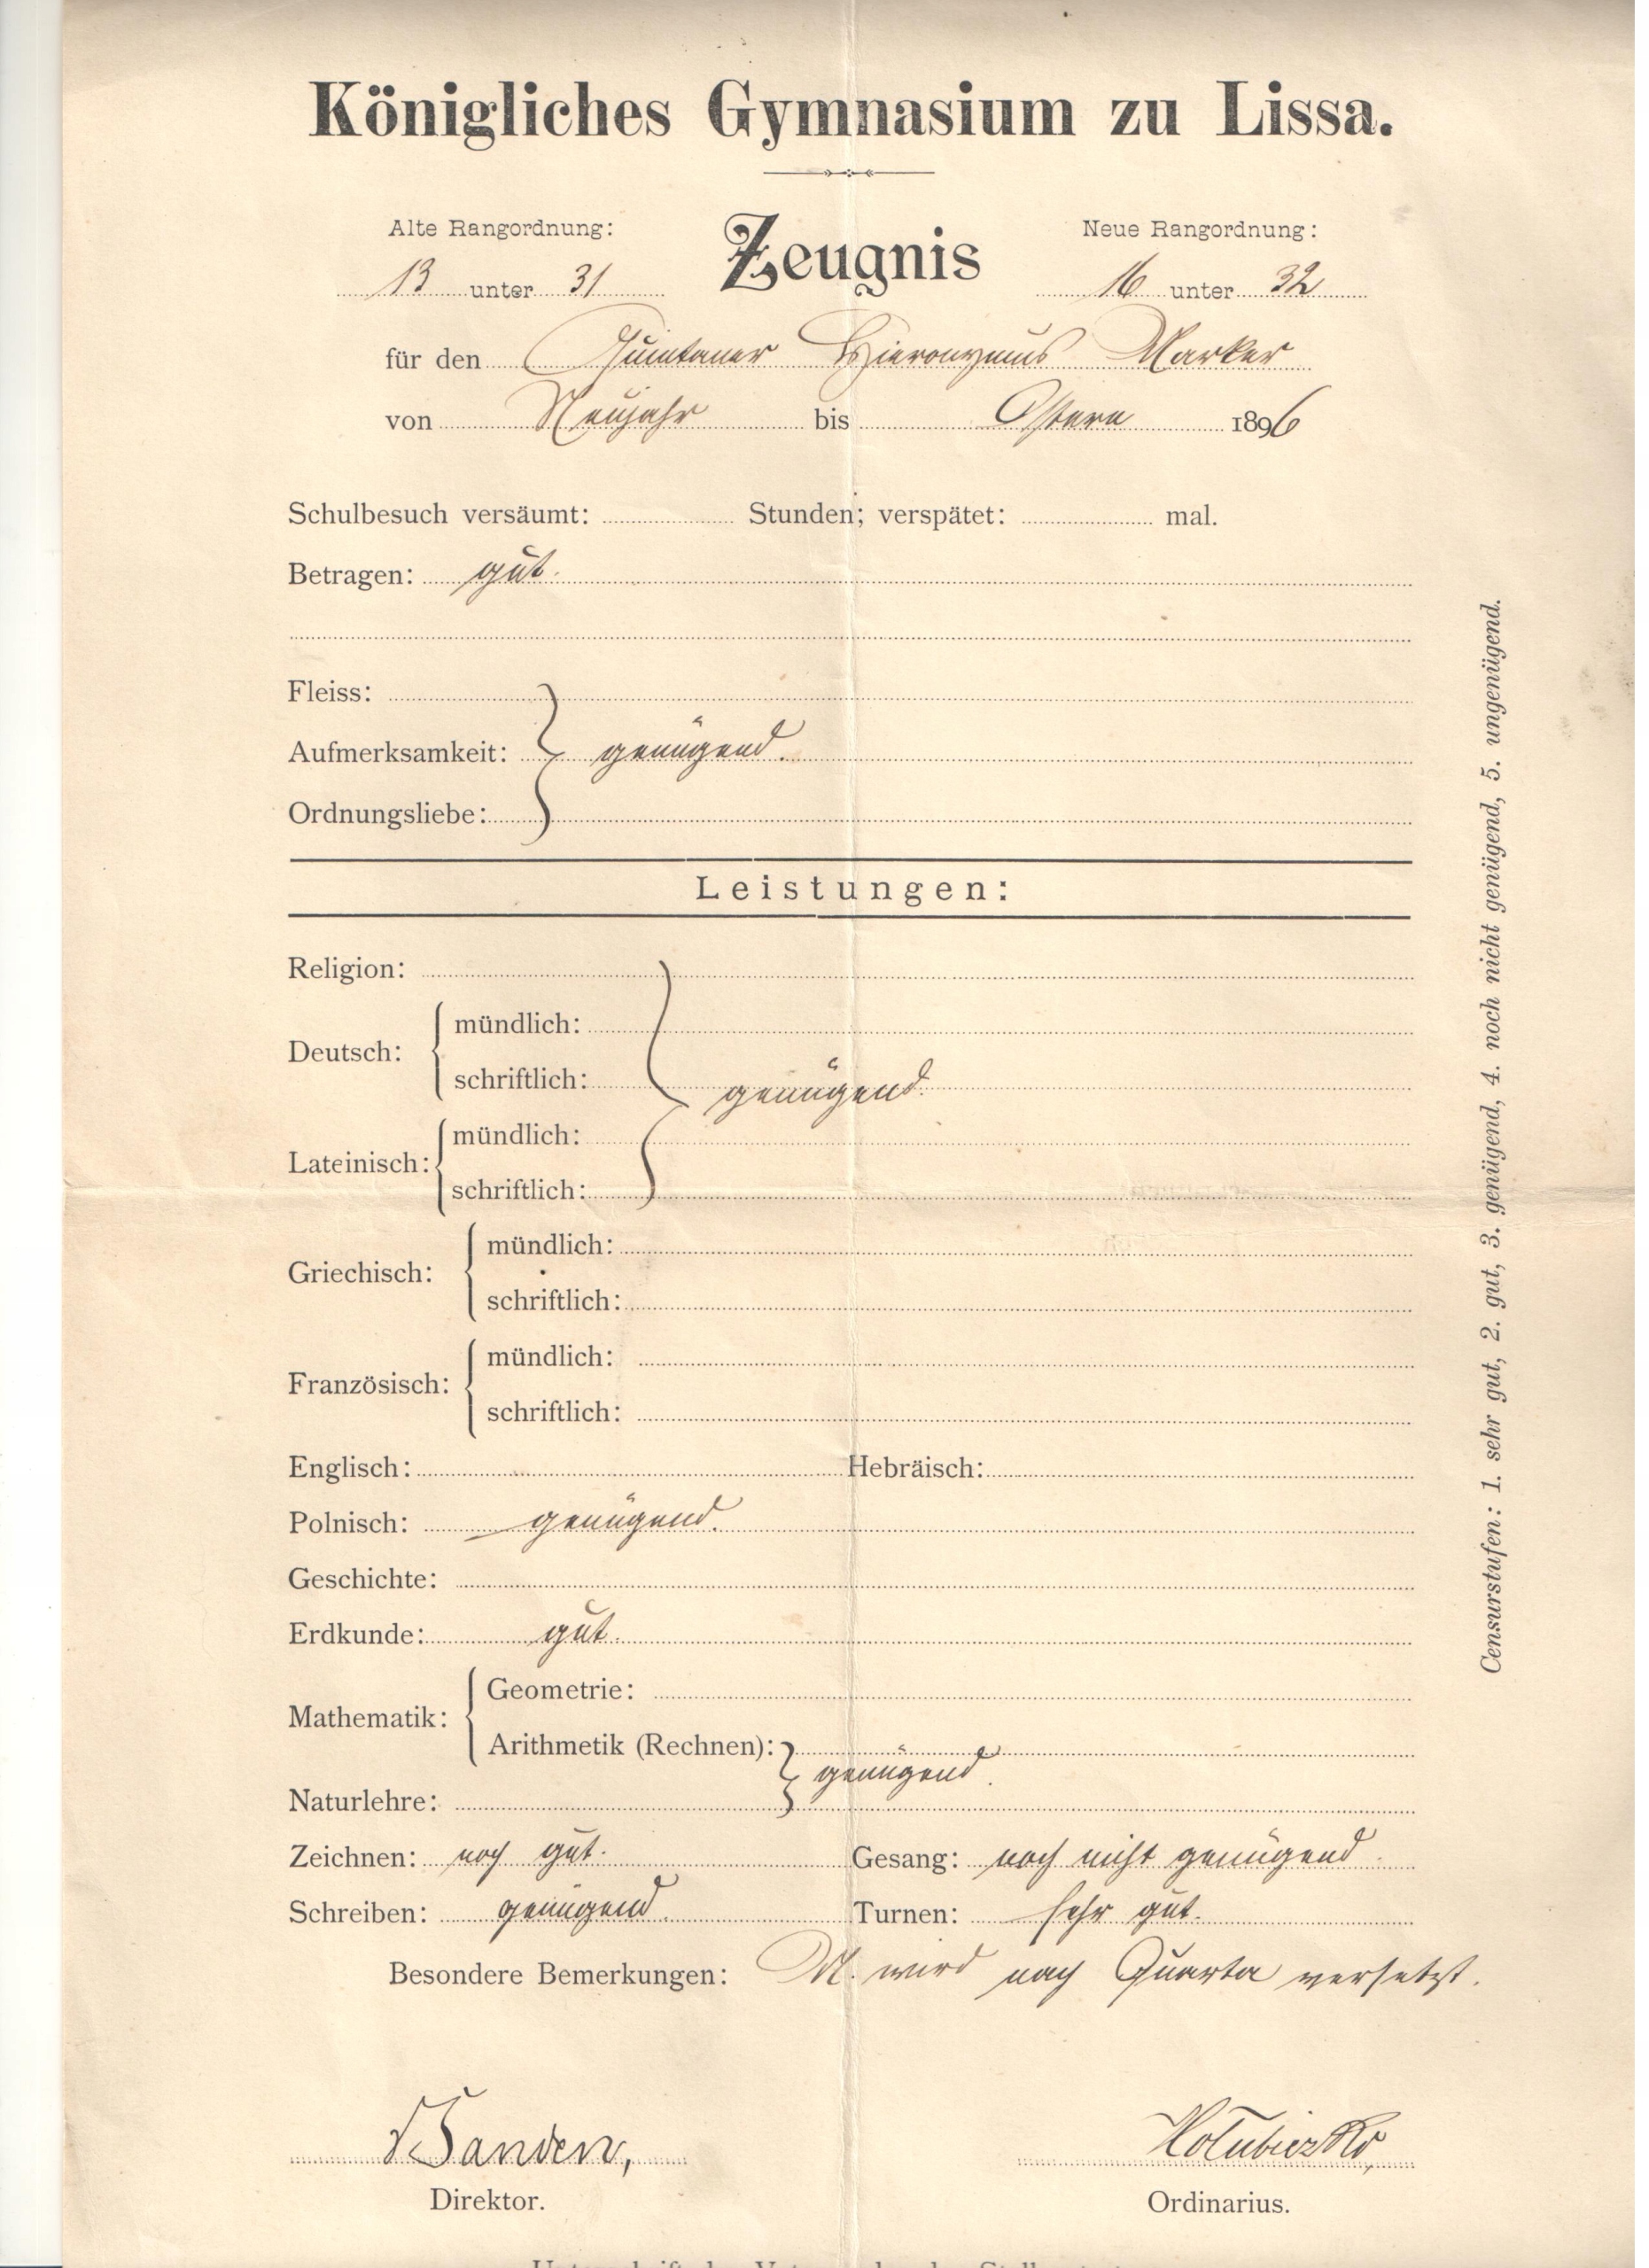 Königliches Gymnasium zu Lissa.
Alte Rangordnung: Zeugnis Neue Rangordnung:
13 unter 31 16 unter 32
für den Quintaner Hieronymus Marker
von Neujahr bis Ostern 1896
Schulbesuch versäumt: Stunden; verspätet: mal.
Betragen: gut.
Fleiss:
Aufmerksamkeit: genügend.
Ordnungsliebe:
Leistungen:
Religion:
Deutsch: mündlich:
schriftlich: genügend.
Lateinisch: mündlich:
schriftlich:
Griechisch: mündlich:
schriftlich:
Französisch: mündlich:
schriftlich:
Englisch: Hebräisch:
Polnisch: genügend.
Geschichte:
Erdkunde: gut.
Mathematik: Geometrie:
Arithmetik (Rechnen): genügend.
Naturlehre:
Zeichnen: noch gut. Gesang: noch nicht genügend.
Schreiben: genügend. Turnen: sehr gut.
Besondere Bemerkungen: M. wird nach Quarta versetzt.
Sanden,
Direktor. Ordinarius.
Censurstufen: 1. sehr gut, 2. gut, 3. genügend, 4. noch nicht genügend, 5. ungenügend.